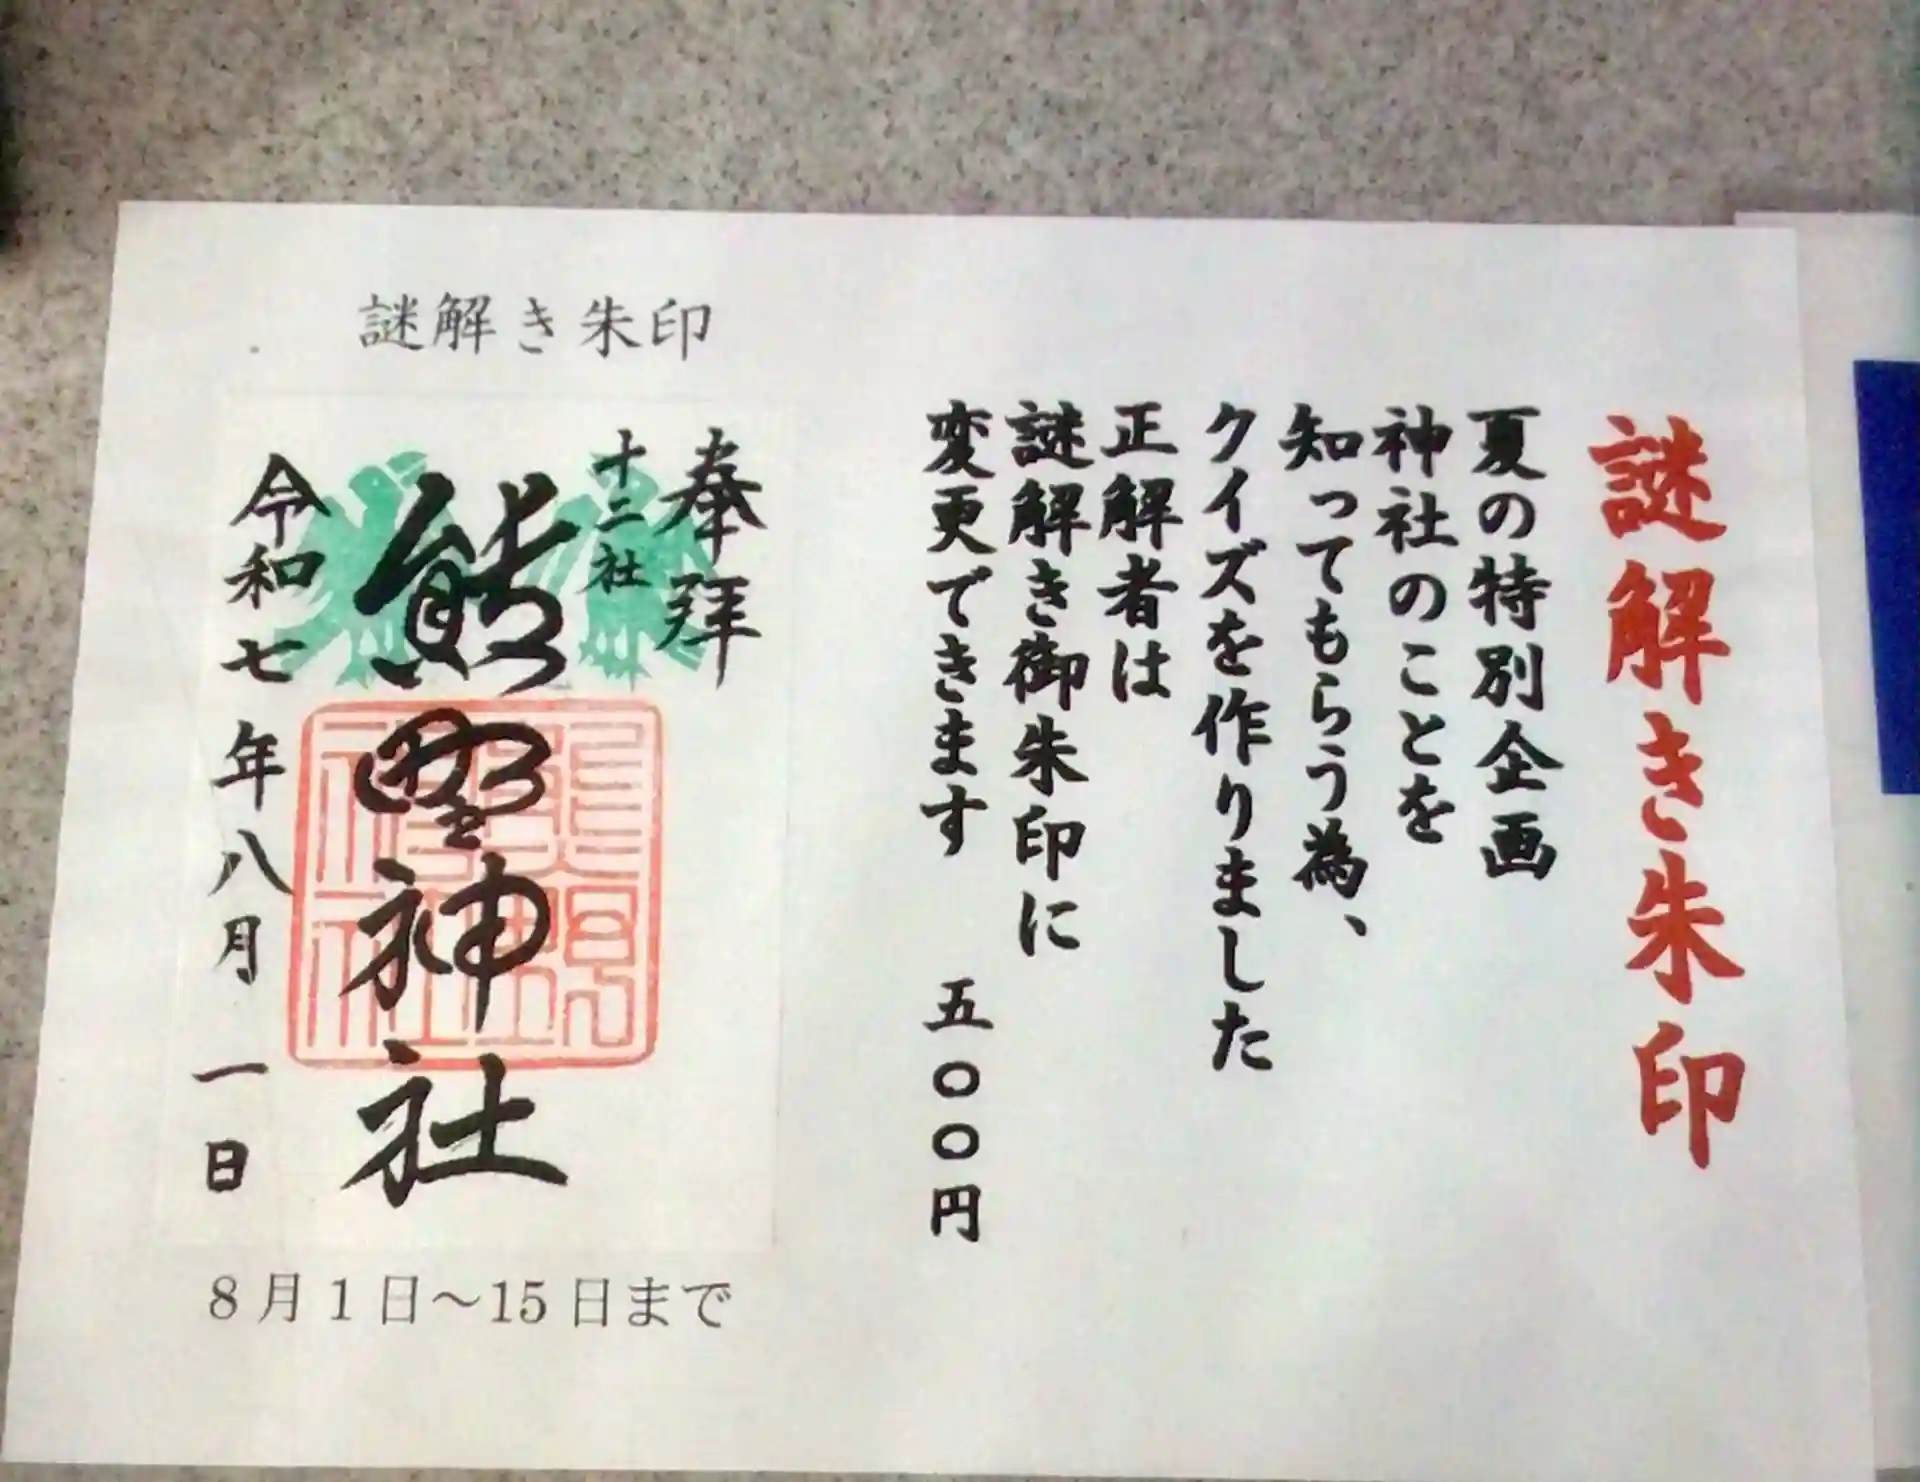 謎解き朱印
夏の特別企画
神社のことを
知ってもらう為、
クイズを作りました
正解者は
謎解き御朱印に
変更できます 五〇〇円
謎解き朱印
奉拝
十二社
熊野神社
令和七年八月一日
8月1日～15日まで